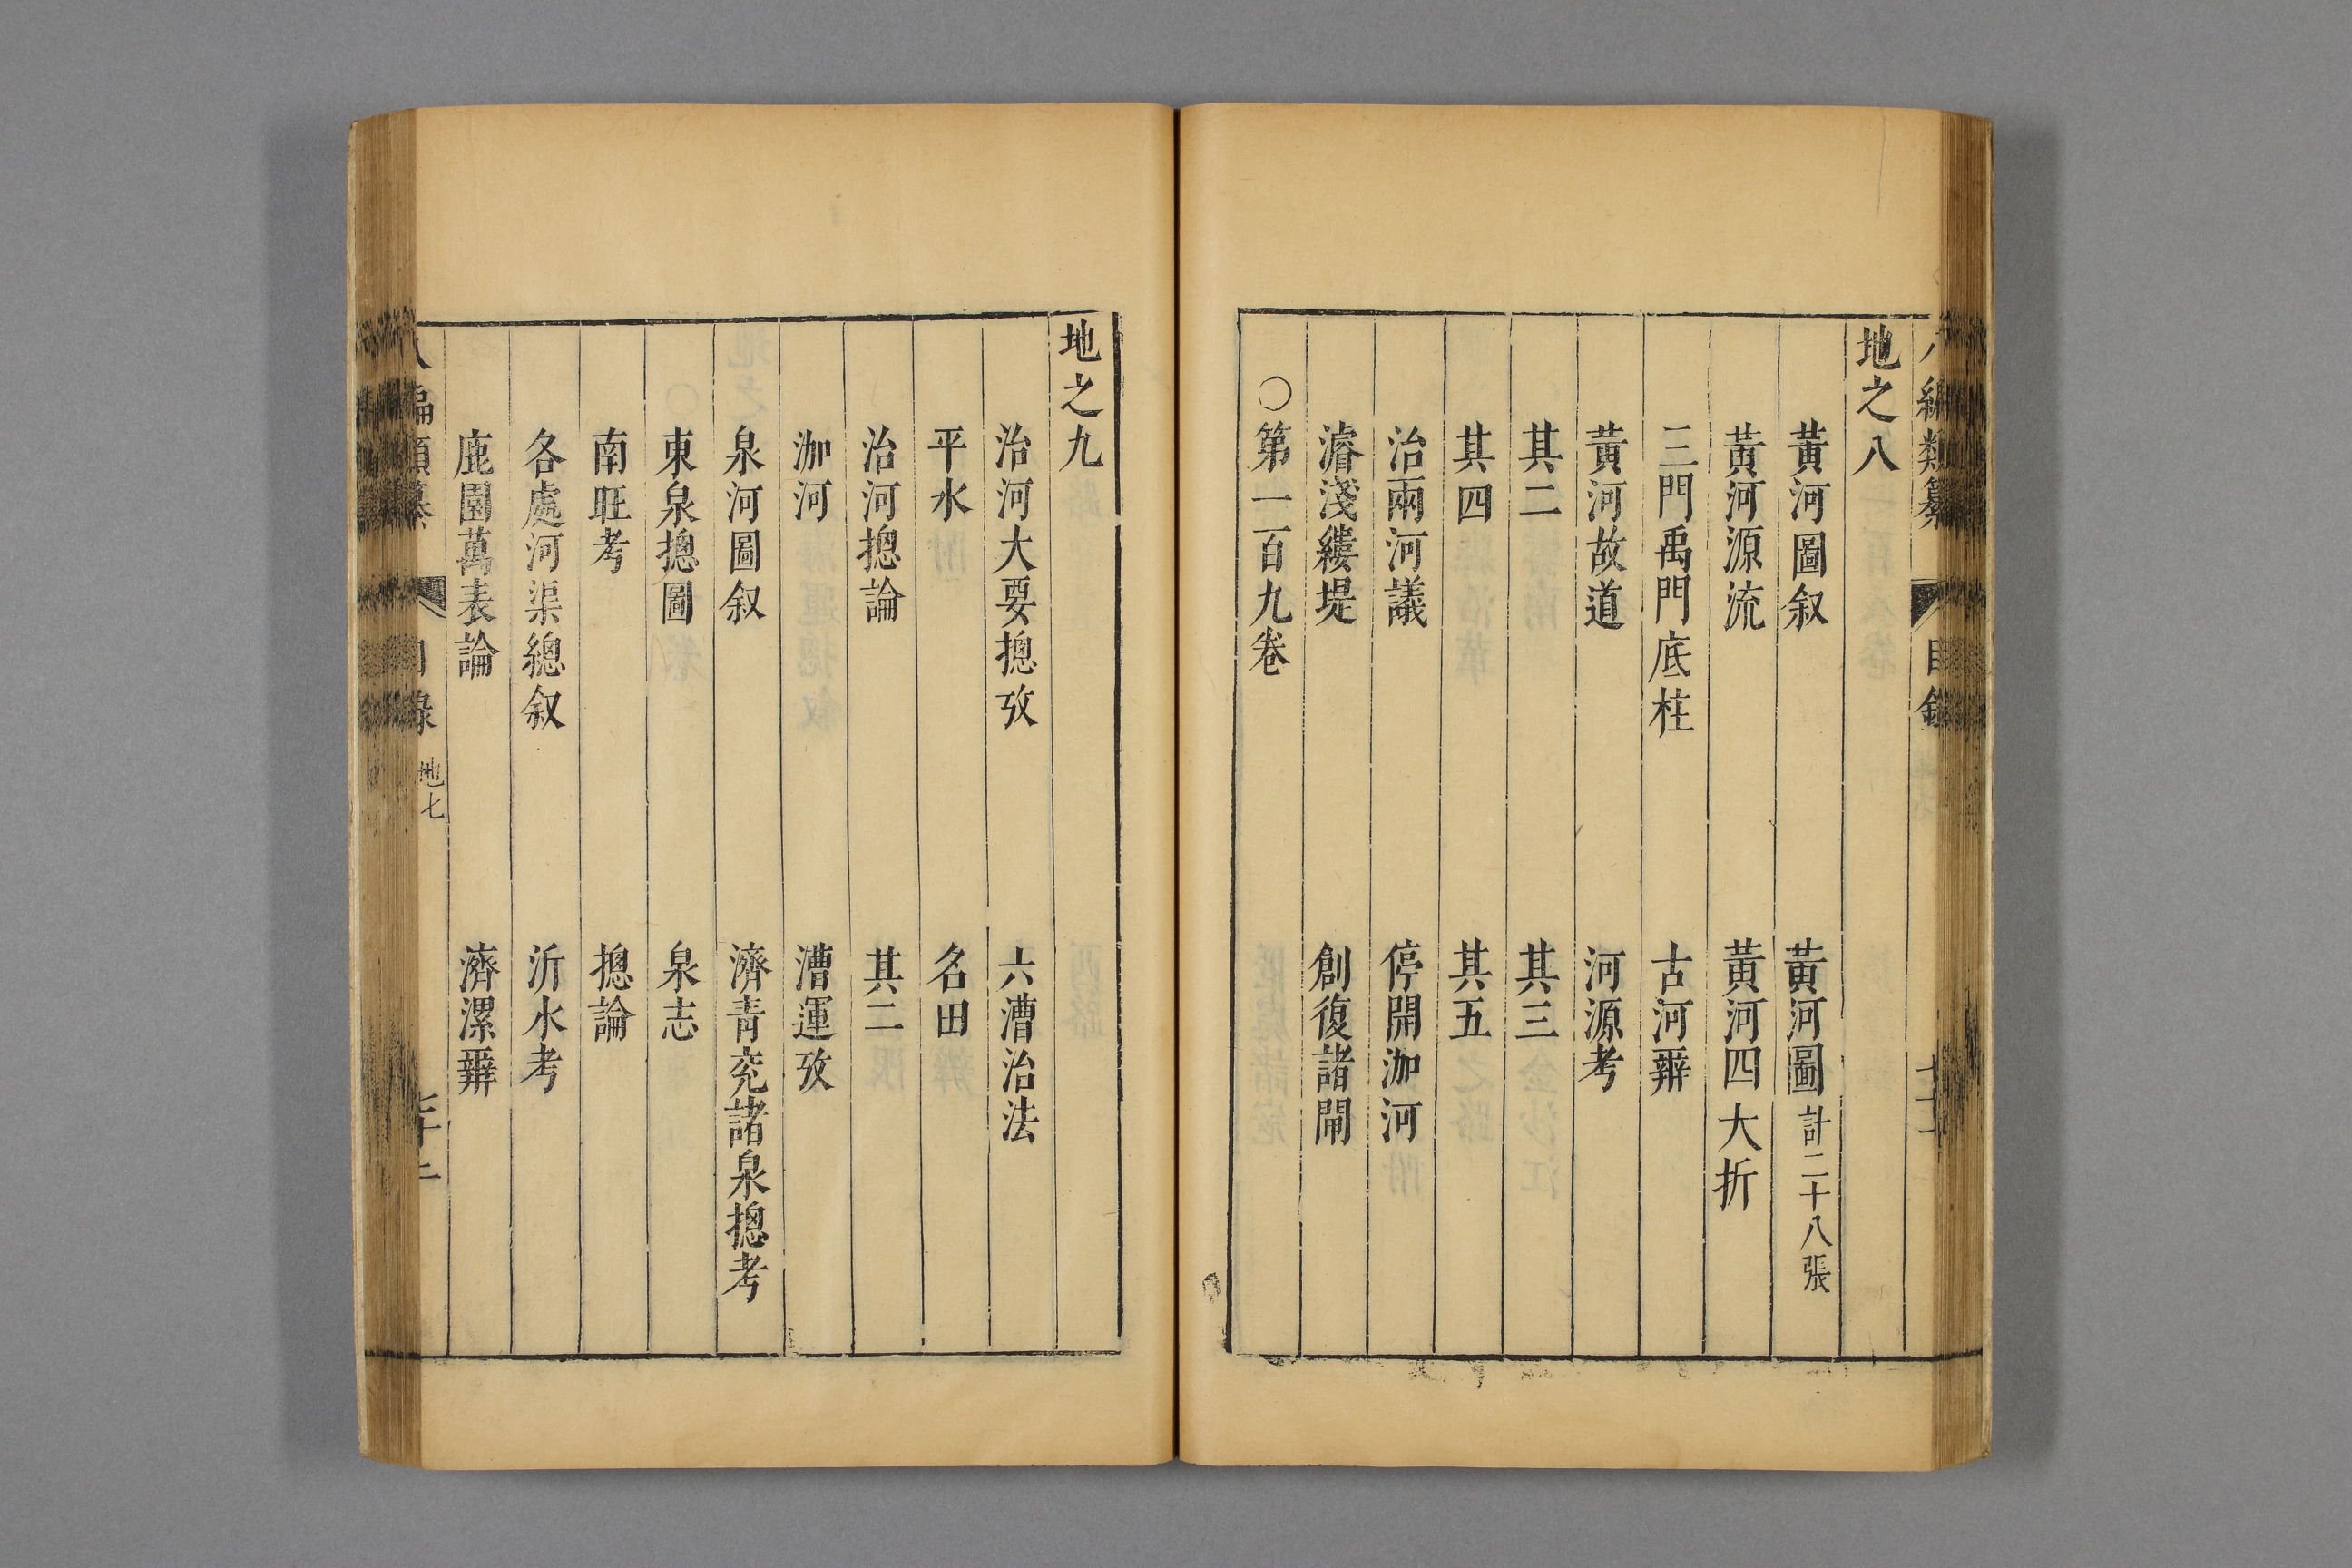 八編類纂 目錄
地之八
黃河圖叙 黃河圖計二十八張
黃河源流 黃河四大折
三門禹門底柱 古河辨
黃河故道 河源考
其二 其三
其四 其五
治兩河議 停開泇河
濬淺縷堤 創復諸閘
○第一百九卷
地之九
治河大要摠攷 六漕治法
平水 名田
治河摠論 其二
泇河 漕運攷
泉河圖叙 濟青兖諸泉摠考
東泉摠圖 泉志
南旺考 摠論
各處河渠總叙 沂水考
鹿園萬表論 濟漯辨
八編類纂 目錄 地七